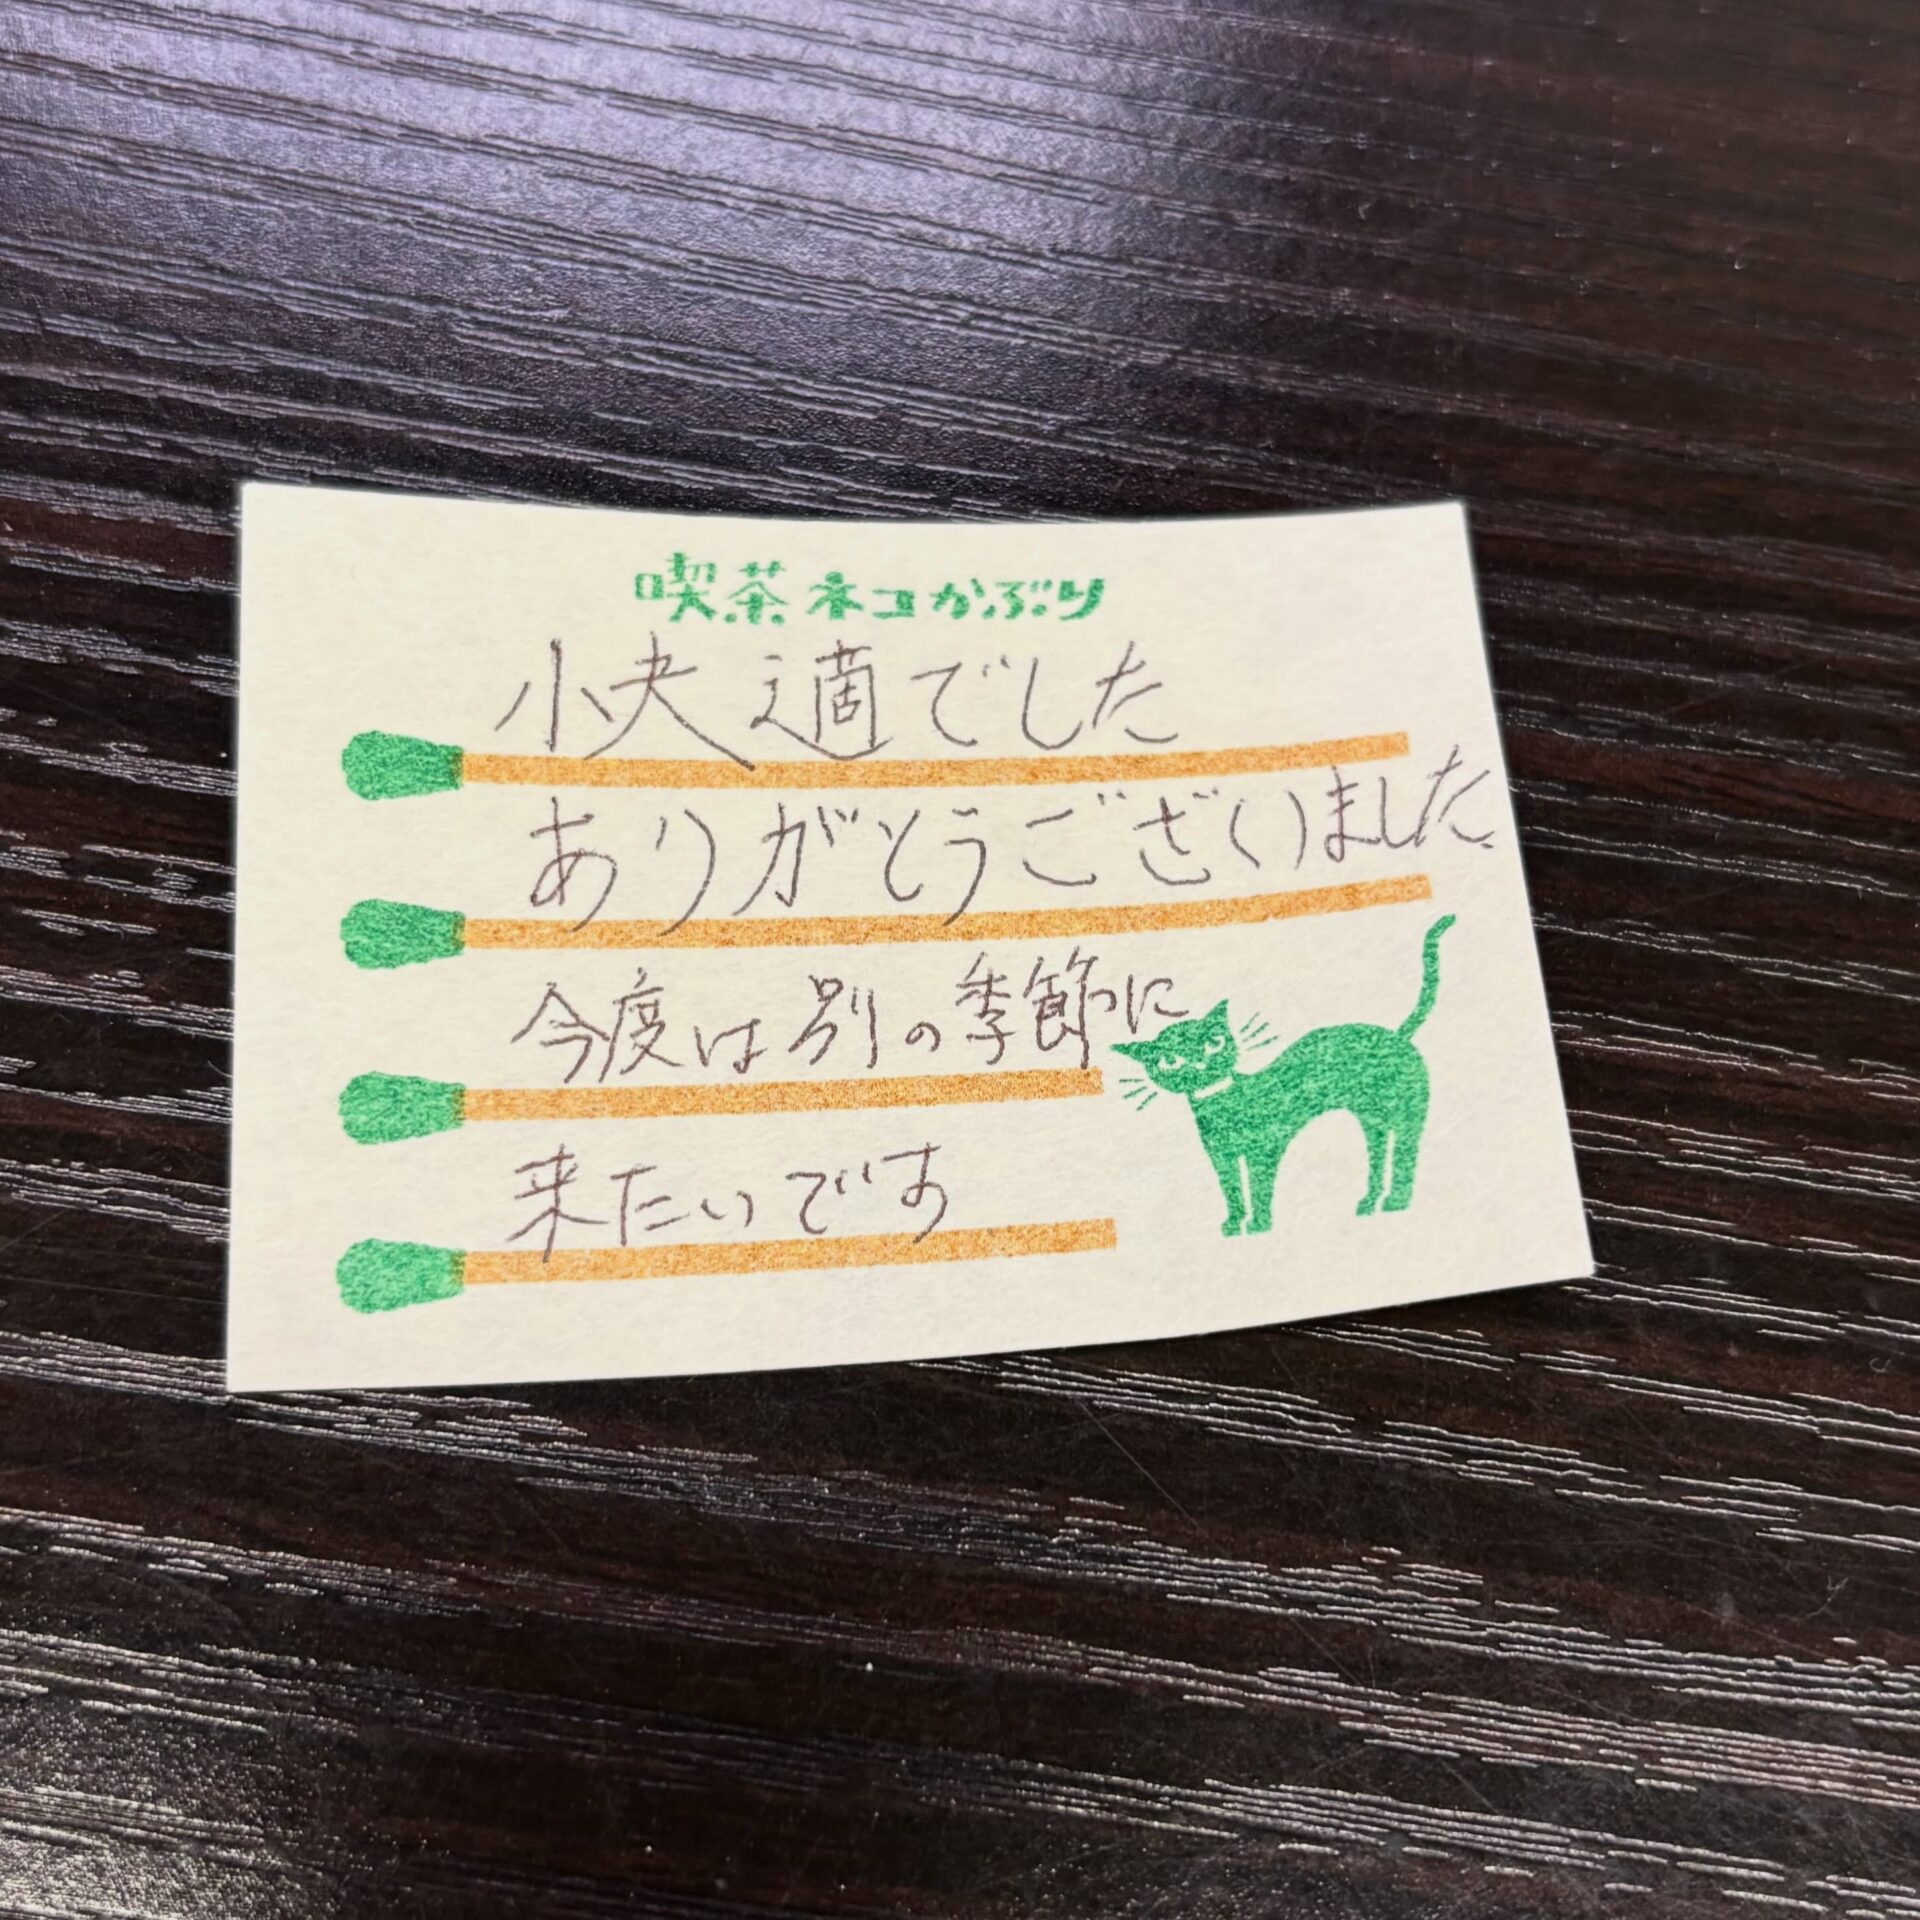 喫茶ネコかぶり
快適でした
ありがとうございました
今度は別の季節に
来たいです